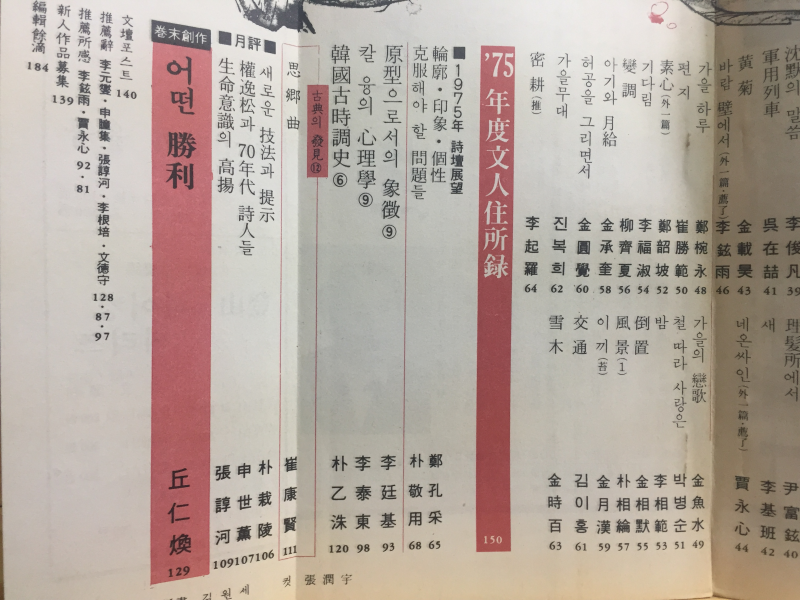 沈默의 말씀 李俊凡 39
軍用列車 吳在喆 41
黃菊 金載昊 43
바람 壁에서(外一篇·薦了) 李鉉雨 46
가을 하루 鄭椀永 48
편지 崔勝範 50
素心(外一篇) 鄭韶坡 52
기다림 李福淑 54
變調 柳齊夏 56
아기와 月給 金承奎 58
허공을 그리면서 金圓覺 60
가을무대 진복희 62
密耕(推) 李起羅 64
理髮所에서 尹富鉉 40
새 李基班 42
네온싸인(外一篇·薦了) 賈永心 44
가을의 戀歌 金魚水 49
철 따라 사랑은 박병순 51
밤 李相範 53
倒置 金相默 55
風景(1) 朴相綸 57
이끼(苔) 金月漢 59
交通 김이홍 61
雪木 金時百 63
'75 年度文人住所録 150
■1975年 詩壇展望
輪廓·印象·個性 鄭孔采 65
克服해야 할 問題들 朴敬用 68
原型으로서의 象徵⑨ 李廷基 93
칼 융의 心理學⑨ 李泰東 98
韓國古時調史⑥ 朴乙洙 120
古典의 發見⑫
思郷曲 崔康賢 111
■月評■
새로운 技法과 提示 朴栽陵 106
權逸松과 70年代 詩人들 申世薰 107
生命意識의 高揚 張諄河 109
巻末創作
어떤 勝利 丘仁煥 129
文壇포스트 140
推薦辭 李元燮·申瞳集·張諄河·李根培·文德守 128·87·97
推薦所感 李鉉雨·賈永心 92·81
新人作品募集 139
編輯餘滴 184
김원세
컷 張潤宇